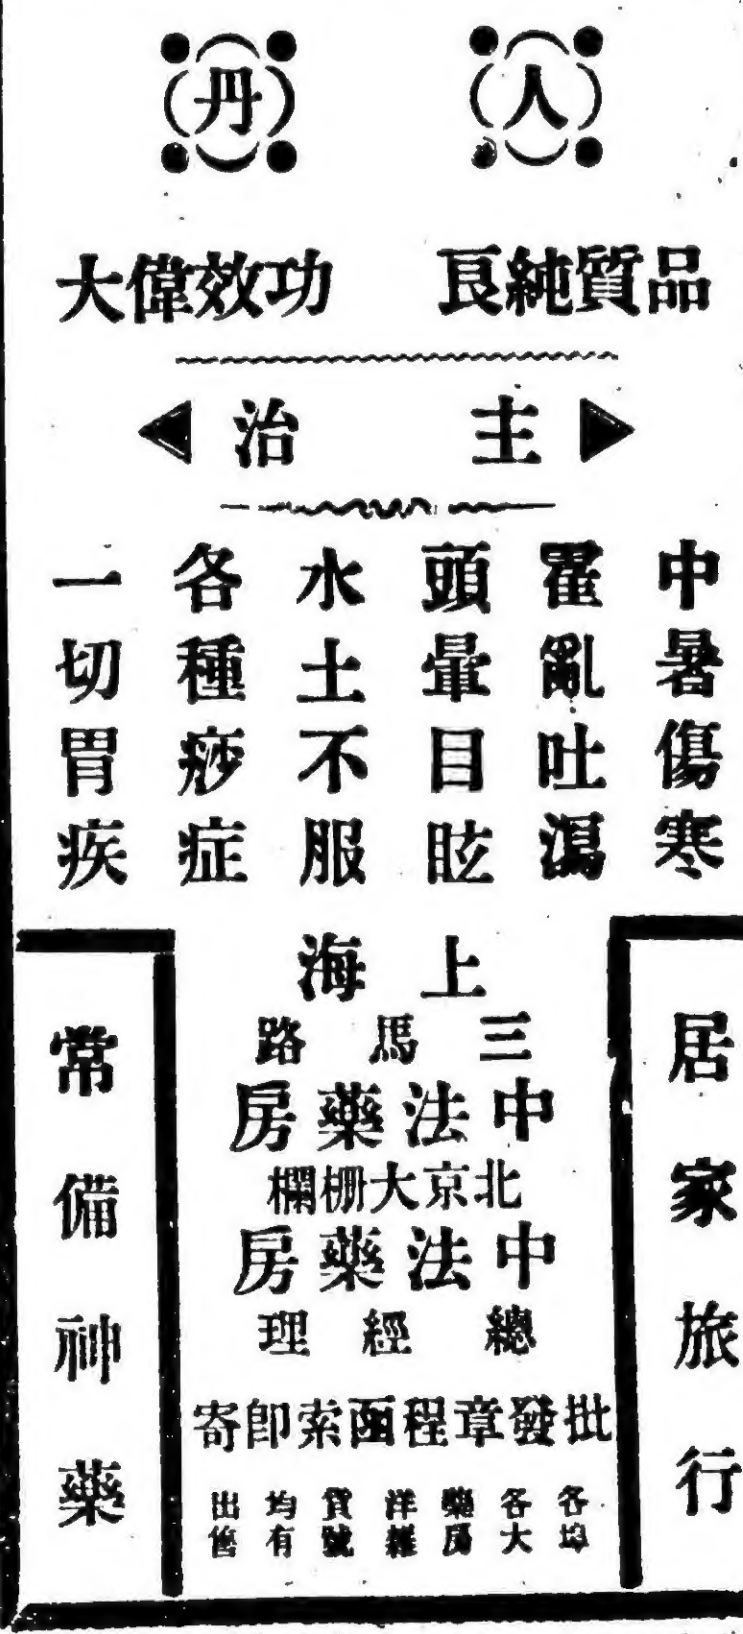 人丹
品質純良 功效偉大
主治
中暑傷寒
霍亂吐瀉
頭暈目眩
水土不服
各種痧症
一切胃疾
居家旅行
上海
三馬路
中法藥房
北京大柵欄
中法藥房
總經理
批發章程函索即寄
各埠各大藥房洋雜貨號均有出售
常備神藥